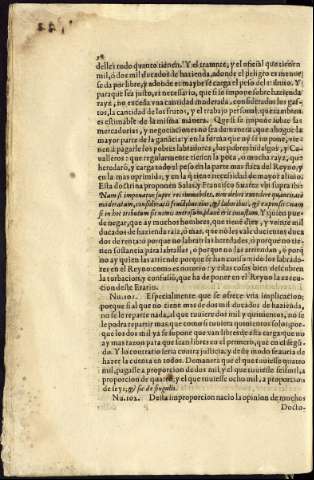 delles todo quanto tienen. Y el tratante, y el oficial que tienen
mil, ó dos mil ducados de hazienda, adonde el peligro es menor,
se da por libre, y adonde es mayor se carga el peso del tributo. Y
para que sea justo, es necesario, que si se impone sobre hazienda
rayz, no exceda vna cantidad moderada, considerados los gas-
tos, la cantidad de los frutos, y el trabajo personal, que es tambien
estimable de la misma manera. Que si se impone sobre las
mercadurias, y negociaciones no sea de manera que ahogue la
mayor parte de la ganãcia y en la forma que oy se impone, vie-
nen à pagarle los pobres labradores, los pobres hidalgos, y Ca-
ualleros: que regularmente tienen la poca, ò mucha rayz, que
heredarõ, y carga todo el peso en la parte mas flaca del Reyno, y
en la mas oprimida, y en la que tiene necesidad de mayor aliuio.
Esta doctrina proponen Salas, y Francisco Suarez vbi supra ibi:
Nam si imponatur super rei immobiles, non debet excedere quantitatem
moderatam, consideratis fructibus eius, & expensis
si in hoc tributum
Y quien pue-
de negar, que ay muchos hombres, que tienen diez, y veinte mil
ducados de hazienda raiz, ò mas, que no les vale docientos duca-
dos de renta ò porque no labran las heredades, ò porque no tie-
nen sustancia para labrallas, ò porque no las arriendan, ò porq̃
no ay quien las arriende porque se han consumido los labrado-
res en el Reyno: como es notorio y estas cosas bien descubren
la turbacion, y confusiõ, que ha de poner en el Reyno la execu-
cion deste Erario.
Nu. 101. Especialmente que se ofrece otra implicacion;
porque si al que no tiene mas de dos mil ducados de hazienda,
no se le reparte nada, al que tuuiere dos mil y quinientos, no se
le podra repartir mas que como si tuuiera quinientos solos: por-
que los dos mil ya se supone que van libres de esta carga: que no
ay mas razon para que sean libres en el primero, que en el segũ-
do. Y lo contrario seria contra justicia, y desse modo se auria de
hazer la cuenta en todos. Demanera que el que tuuiesse quatro
mil, pagasse a proporcion de dos mil, y el que tuuiesse seis mil, a
proporcion de quatro, y el que tuuiesse ocho mil, a proporcion
de seys, & sic de singulis.
Nu. 102. De ssa improporcion nacio la opinion de muchos
Docto-